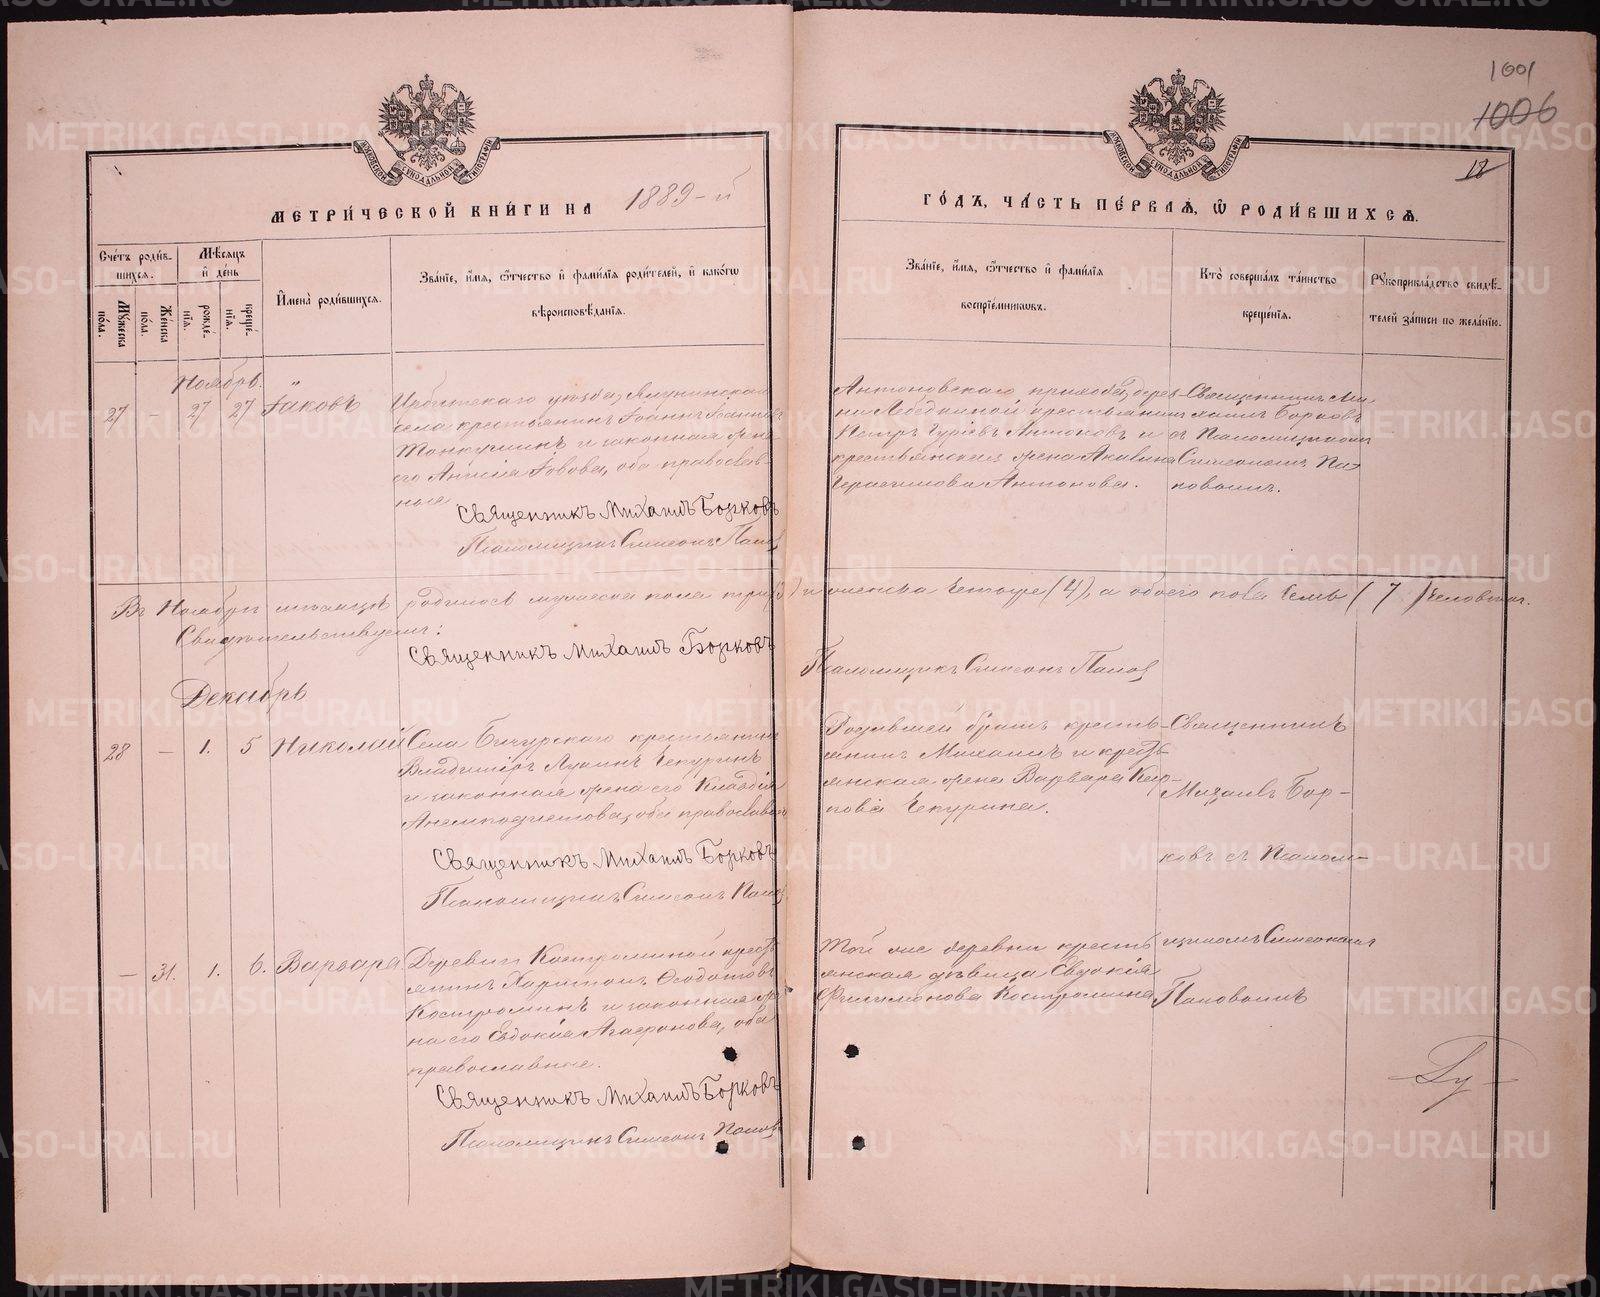 1001
1006
18
МЕТРИ́ЧЕСКОЙ КНИ́ГИ НА 1889-й
ГО́ДЪ, ЧА́СТЬ ПЕ́РВАЯ, Ѡ РОДИ́ВШИХСЯ.
Сче́тъ роди́в-
шихся.
Мѣ́сяцъ
и де́нь
Му́жеска по́ла.
Же́нска по́ла.
рожде́-
нїя.
креще́-
нїя.
И́мена̀ роди́вшихся.
Зва́нїе, и́мя, ѻ́тчество и фами́лїя роди́телей, и како́гѡ
вѣроисповѣ́данїя.
Зва́нїе, и́мя, ѻ́тчество и фами́лїя
воспрїе́мниковъ.
Кто̀ соверша́лъ та́инство
креще́нїя.
Рꙋкоприкла́дство свидѣ́-
телей за́писи по жела́нїю.
Ноябрь.
27 - 27 27 Іаковъ
Ирбитскаго уѣзда,
села крестьянинъ Іоаннъ
и законная жена
его Іовова, оба православ-
ные
Священникъ Михаилъ Борковъ
Псаломщикъ Симеонъ Попов
Антоновскаго прихода, дерев-
ни Лебедкиной крестьянинъ
Петръ Гурiевъ Антоновъ и
крестьянская жена Акилина
Герасимова Антонова.
Священникъ Ми-
хаилъ Борковъ
съ Псаломщикомъ
Симеономъ По-
повымъ.
Въ Ноябрѣ мѣсяцѣ родилось мужеска пола три (3) и женска четыре (4), а обоего пола семь (7) человѣкъ.
Свидѣтельствуемъ:
Священникъ Михаилъ Борковъ
Псаломщикъ Симеонъ Попов
Декабрь
28 - 1. 5 Николай
Села Бичурскаго крестьянинъ
Владимiръ Чекуринъ
и законная жена его Клавдiя
Анемподистова, оба православные
Священникъ Михаилъ Борковъ
Псаломщикъ Симеонъ Попов
Родившей братъ кресть-
янинъ Михаилъ и кресть-
янская жена Варвара Кар-
пова Чекурина.
Священникъ
Михаилъ Бор-
ковъ съ Псалом-
щикомъ Симеономъ
Поповымъ
- 31. 1. 6. Варвара
Деревни Костроминой кресть-
янинъ Харитонъ Ѳеодотовъ
Костроминъ и законная же-
на его Евдокiя Агафонова, оба
православные.
Священникъ Михаилъ Борковъ
Псаломщикъ Симеонъ Попов
Той же деревни кресть-
янская дѣвица Евдокiя
Филимонова Костромина
Гу-
METRIKI.GASO-URAL.RU